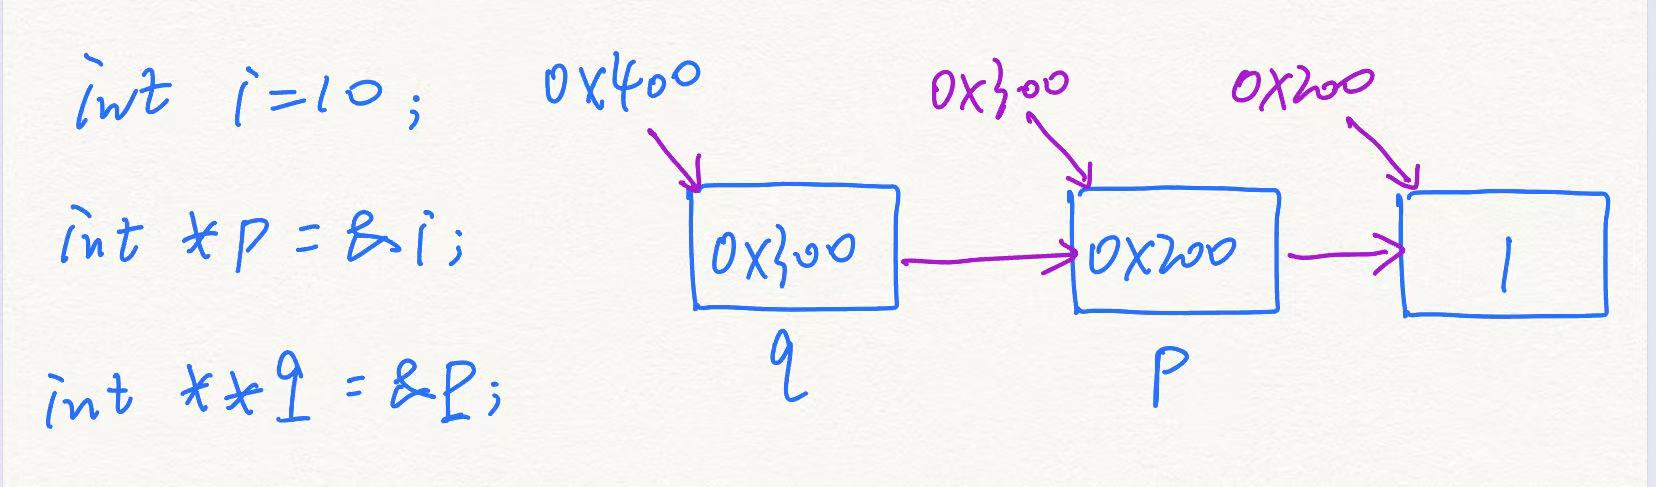 int i=10;
int *p=&i;
int **q=&p;
0x400
0x300
0x200
0x300
0x200
1
q
p